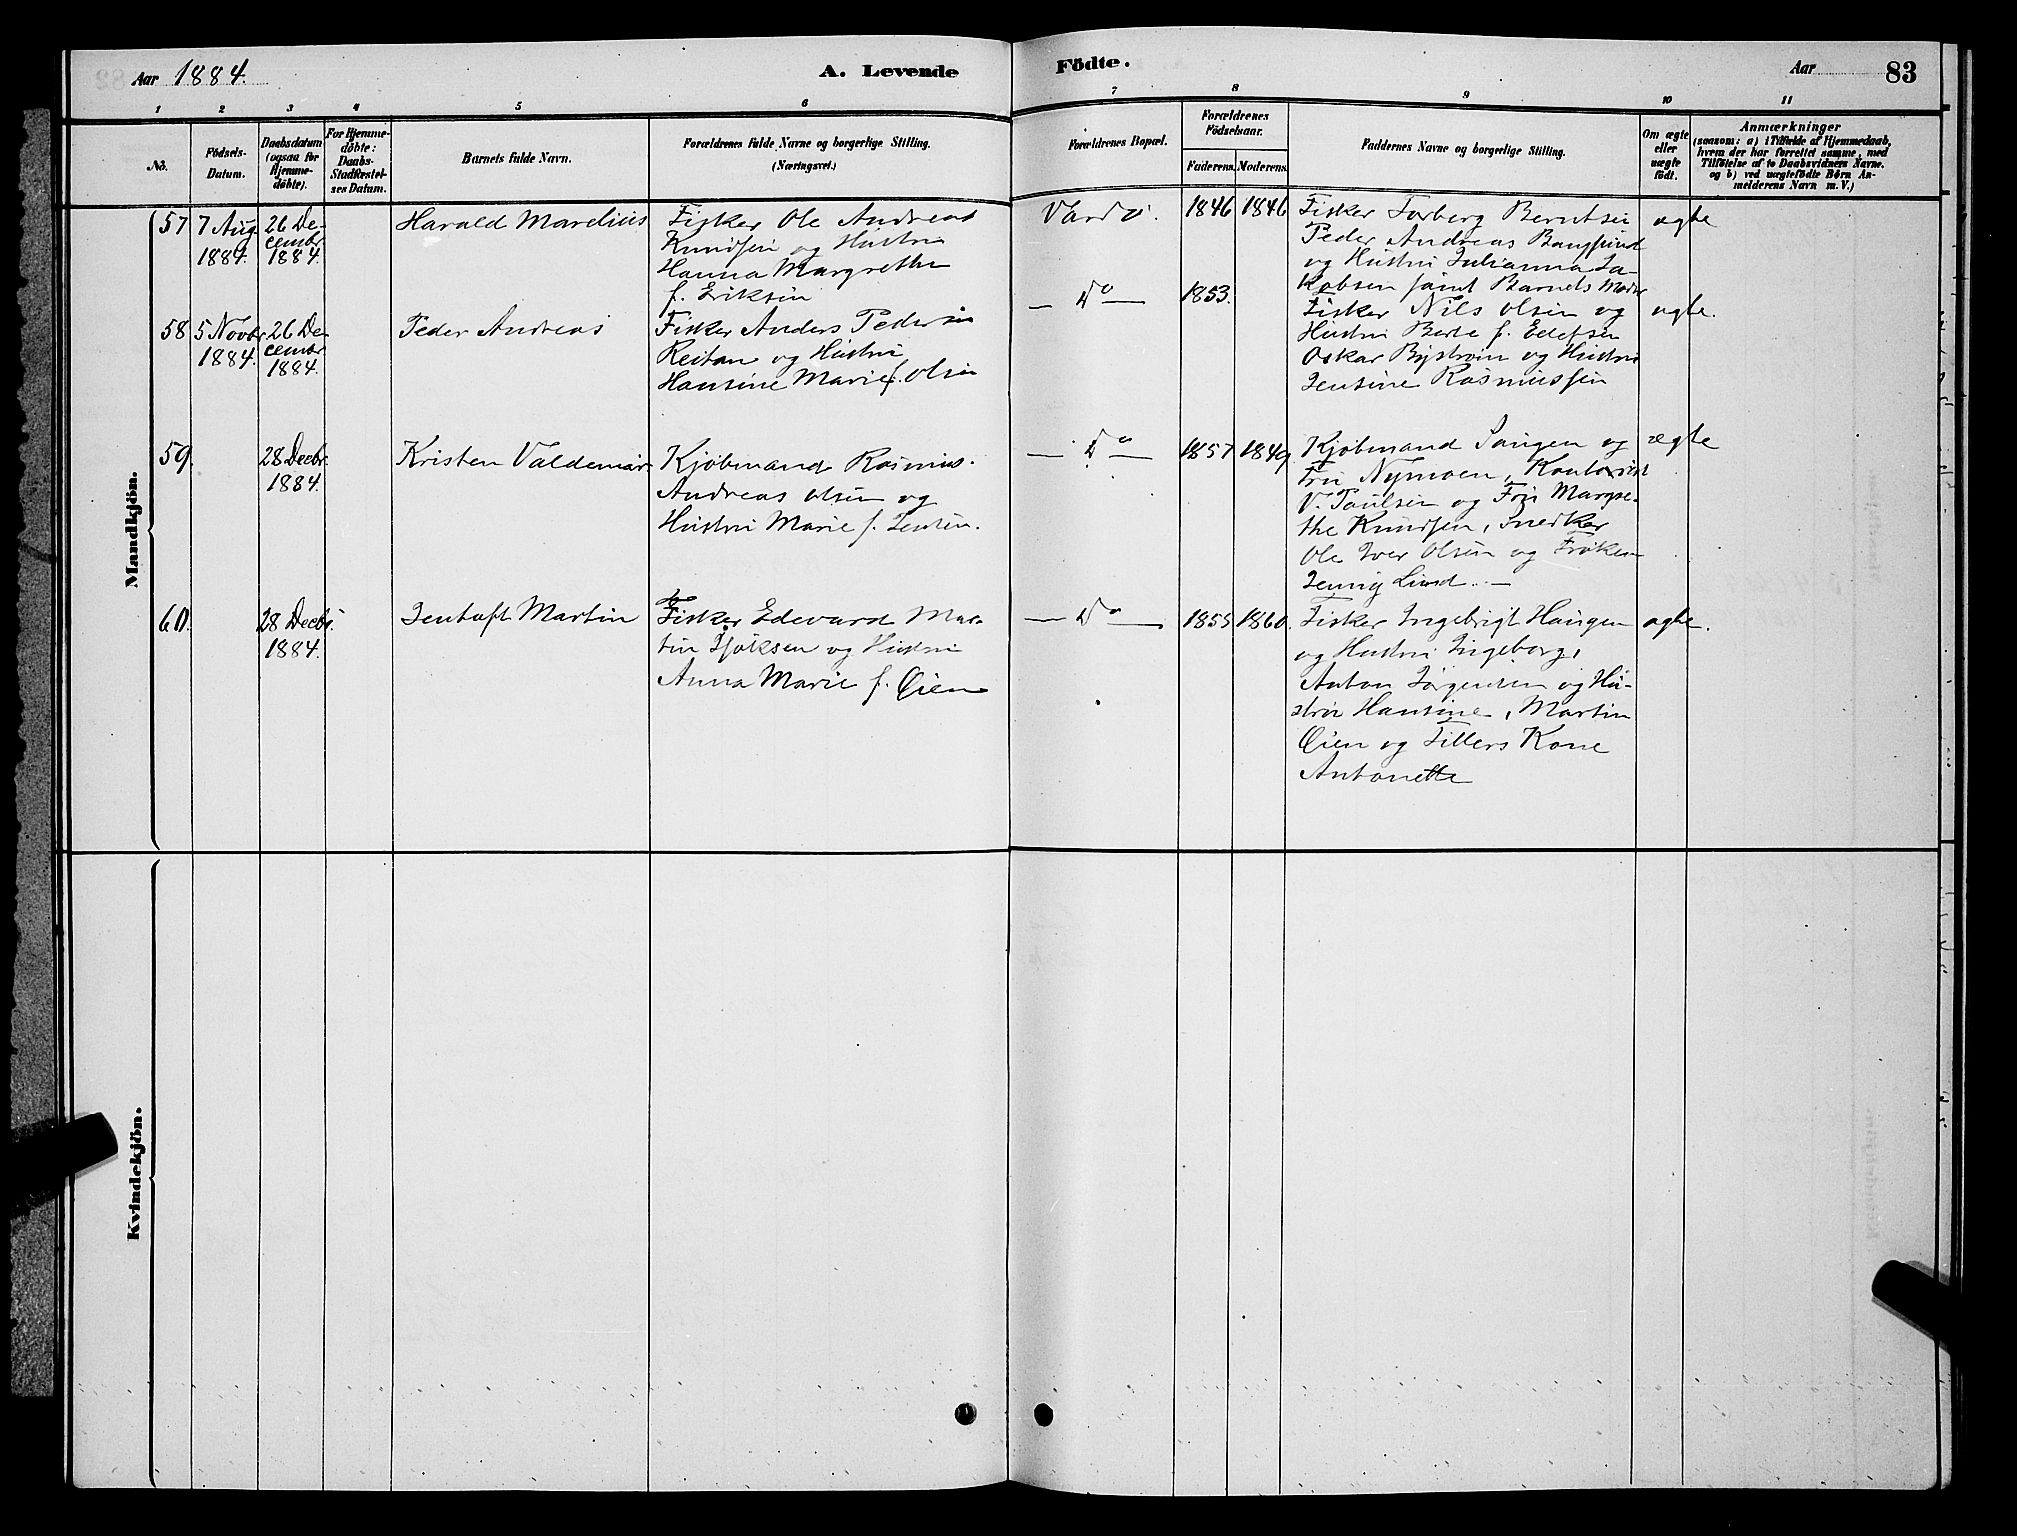 Aar 1884.
A. Levende
Födte.
Aar
83
1
2
3
4
5
6
7
8
9
10
11
No.
Födsels-
Datum.
Daabsdatum
(ogsaa for
Hjemme-
döbte).
For Hjemme-
döbte:
Daabs-
Stadfæstel-
ses Datum.
Barnets fulde Navn.
Forældrenes fulde Navne og borgerlige Stilling.
(Næringsvei.)
Forældrenes Bopæl.
Forældrenes
Födselsaar.
Faderens.
Moderens.
Faddernes Navne og borgerlige Stilling.
Om ægte
eller
uægte
födt.
Anmærkninger
(saasom: a) i Tilfælde af Hjemmedaab,
hvem der har forrettet samme, med
Tilföielse af to Daabsvidners Navne.
og b) ved uægtefödte Börn An-
melderens Navn m. V.)
Mandkjön.
57
7 Aug
1884.
26 De-
cembr
1884.
Harald Marelius
Fisker Ole Andreas
Knudsen og Hustru
Hanna Margrethe
f. Eriksen
Vardø.
1846
1846
Fisker Torberg Berntsen
Peder Andreas
og Hustru Julianna Ja-
kobsen samt Barnets Moder
ægte
58
5 Novbr
1884.
26 De-
cembr
1884.
Peder Andreas
Fisker Anders Pedersen
Reitan og Hustru
Hansine Marie f. Olsen
— Do —
1853.
Fisker Nils Olsen og
Hustru Berte f.
Oskar Byström og Hustru
Jensine Rasmussen
ægte.
59.
28 Decbr.
1884.
Kristen Valdemar
Kjøbmand Rasmus
Andreas Olsen og
Hustru Marie f. Jensen.
— Do —
1857
1849.
Kjøbmand Saugen og
Fru Nymoen, Kontorist
V. Paulsen og Fru Margre-
the Knudsen, Snedker
Ole Iver Olsen og Frøken
Jenny Lund. —
ægte
60.
28 Decbr.
1884.
Jentoft Martin
Fisker Edevard Mar-
tin og Hustru
Anna Marie f. Øien
— Do —
1855
1860.
Fisker Ingebrigt Haugen
og Hustru Ingeborg,
Anton Jørgensen og Hu-
stru Hansine, Martin
Øien og Tillers Kone
Antonette
ægte.
Kvindekjön.